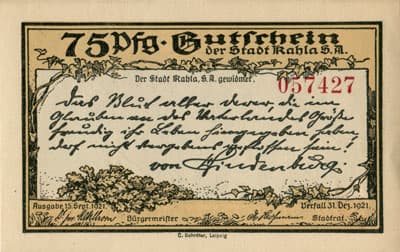 75 Pfg. Gutschein
der Stadt Kahla S.A.
Der Stadt Kahla, S.A. gewidmet.
057427
Das Blut aller derer, die im
Glauben an des Vaterlandes Größe
freudig ihr Leben hingegeben haben,
darf nicht vergebens geflossen sein!
von Hindenburg.
Ausgabe 15. Sept. 1921.
Verfall 31. Dez. 1921.
Bürgermeister
Stadtrat.
C. Schröter, Leipzig